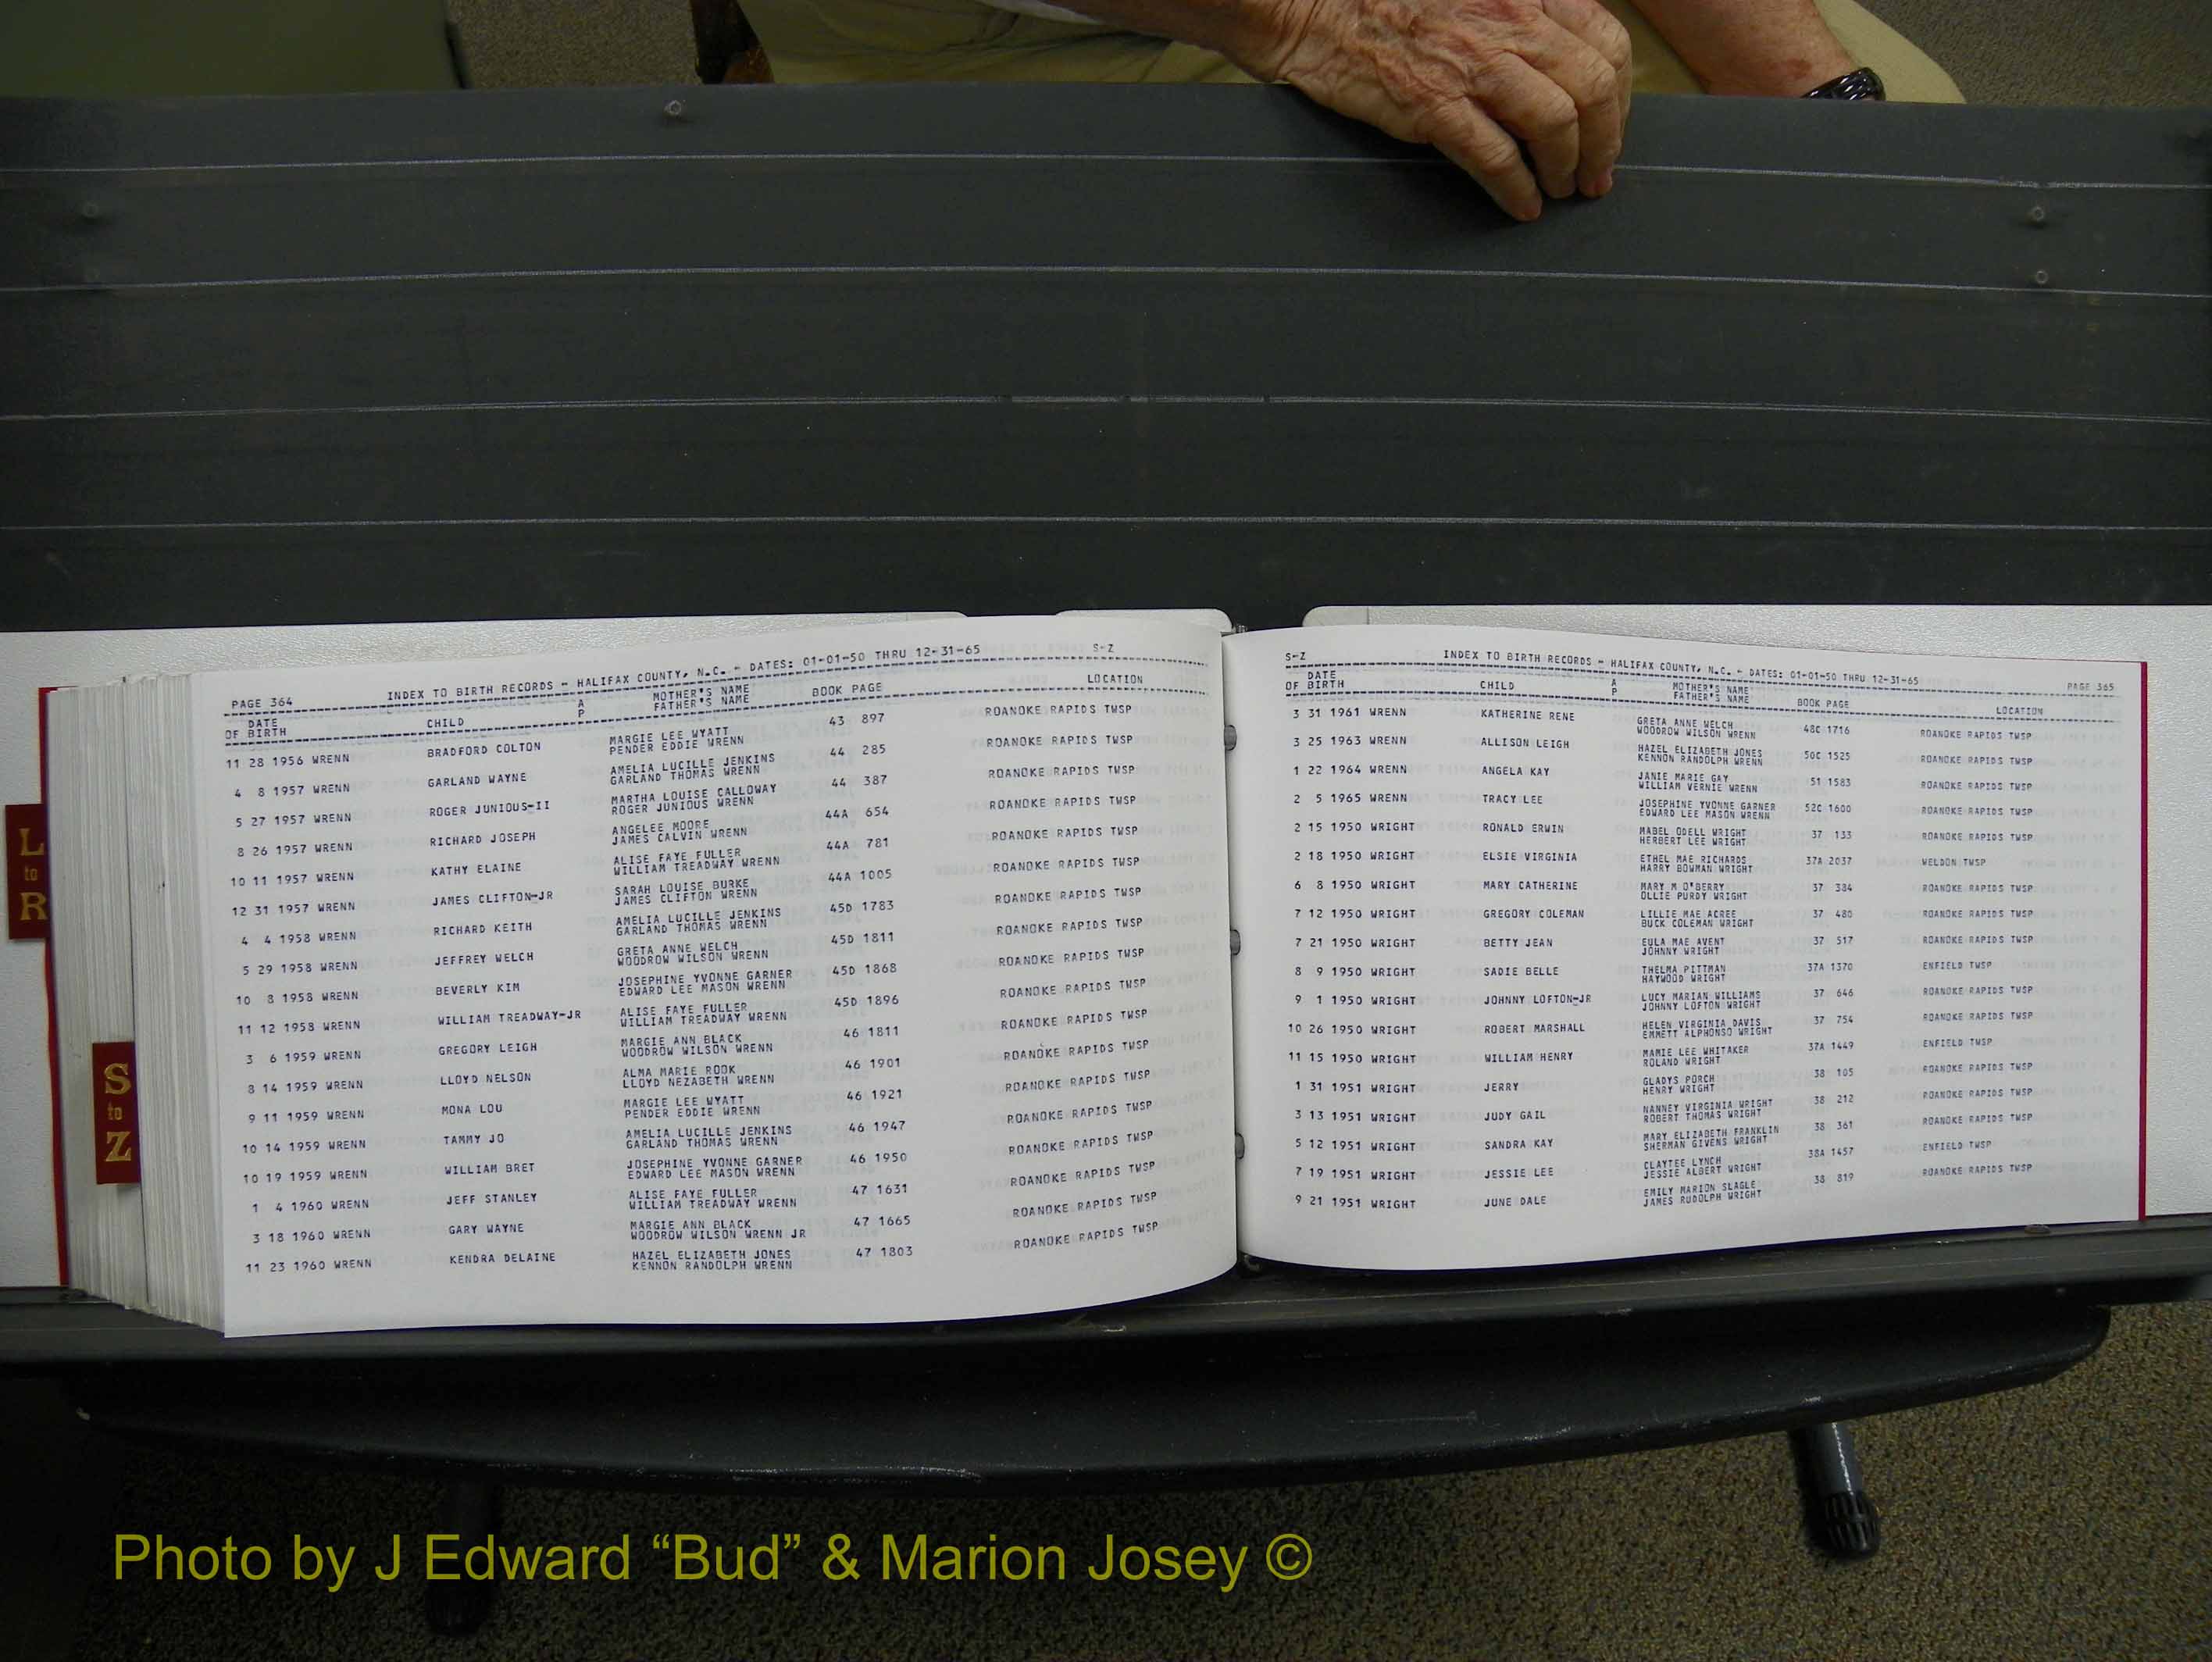 L
to
R
S
to
Z
PAGE 364 INDEX TO BIRTH RECORDS - HALIFAX COUNTY, N.C. - DATES: 01-01-50 THRU 12-31-65 S-Z
DATE OF BIRTH CHILD A P MOTHER'S NAME FATHER'S NAME BOOK PAGE LOCATION
11 28 1956 WRENN BRADFORD COLTON MARGIE LEE WYATT 43 897 ROANOKE RAPIDS TWSP
PENDER EDDIE WRENN
4 8 1957 WRENN GARLAND WAYNE AMELIA LUCILLE JENKINS 44 285 ROANOKE RAPIDS TWSP
GARLAND THOMAS WRENN
5 27 1957 WRENN ROGER JUNIOUS-II MARTHA LOUISE CALLOWAY 44 387 ROANOKE RAPIDS TWSP
ROGER JUNIOUS WRENN
8 26 1957 WRENN RICHARD JOSEPH ANGELEE MOORE 44A 654 ROANOKE RAPIDS TWSP
JAMES CALVIN WRENN
10 11 1957 WRENN KATHY ELAINE ALISE FAYE FULLER 44A 781 ROANOKE RAPIDS TWSP
WILLIAM TREADWAY WRENN
12 31 1957 WRENN JAMES CLIFTON-JR SARAH LOUISE BURKE 44A 1005 ROANOKE RAPIDS TWSP
JAMES CLIFTON WRENN
4 4 1958 WRENN RICHARD KEITH AMELIA LUCILLE JENKINS 45D 1783 ROANOKE RAPIDS TWSP
GARLAND THOMAS WRENN
5 29 1958 WRENN JEFFREY WELCH GRETA ANNE WELCH 45D 1811 ROANOKE RAPIDS TWSP
WOODROW WILSON WRENN
10 8 1958 WRENN BEVERLY KIM JOSEPHINE YVONNE GARNER 45D 1868 ROANOKE RAPIDS TWSP
EDWARD LEE MASON WRENN
11 12 1958 WRENN WILLIAM TREADWAY-JR ALISE FAYE FULLER 45D 1896 ROANOKE RAPIDS TWSP
WILLIAM TREADWAY WRENN
3 6 1959 WRENN GREGORY LEIGH MARGIE ANN BLACK 46 1811 ROANOKE RAPIDS TWSP
WOODROW WILSON WRENN
8 14 1959 WRENN LLOYD NELSON ALMA MARIE ROOK 46 1901 ROANOKE RAPIDS TWSP
LLOYD NEZABETH WRENN
9 11 1959 WRENN MONA LOU MARGIE LEE WYATT 46 1921 ROANOKE RAPIDS TWSP
PENDER EDDIE WRENN
10 14 1959 WRENN TAMMY JO AMELIA LUCILLE JENKINS 46 1947 ROANOKE RAPIDS TWSP
GARLAND THOMAS WRENN
10 19 1959 WRENN WILLIAM BRET JOSEPHINE YVONNE GARNER 46 1950 ROANOKE RAPIDS TWSP
EDWARD LEE MASON WRENN
1 4 1960 WRENN JEFF STANLEY ALISE FAYE FULLER 47 1631 ROANOKE RAPIDS TWSP
WILLIAM TREADWAY WRENN
3 18 1960 WRENN GARY WAYNE MARGIE ANN BLACK 47 1665 ROANOKE RAPIDS TWSP
WOODROW WILSON WRENN JR
11 23 1960 WRENN KENDRA DELAINE HAZEL ELIZABETH JONES 47 1803 ROANOKE RAPIDS TWSP
KENNON RANDOLPH WRENN
S-Z INDEX TO BIRTH RECORDS - HALIFAX COUNTY, N.C. - DATES: 01-01-50 THRU 12-31-65 PAGE 365
DATE OF BIRTH CHILD A P MOTHER'S NAME FATHER'S NAME BOOK PAGE LOCATION
3 31 1961 WRENN KATHERINE RENE GRETA ANNE WELCH 48C 1716 ROANOKE RAPIDS TWSP
WOODROW WILSON WRENN
3 25 1963 WRENN ALLISON LEIGH HAZEL ELIZABETH JONES 50C 1525 ROANOKE RAPIDS TWSP
KENNON RANDOLPH WRENN
1 22 1964 WRENN ANGELA KAY JANIE MARIE GAY 51 1583 ROANOKE RAPIDS TWSP
WILLIAM VERNIE WRENN
2 5 1965 WRENN TRACY LEE JOSEPHINE YVONNE GARNER 52C 1600 ROANOKE RAPIDS TWSP
EDWARD LEE MASON WRENN
2 15 1950 WRIGHT RONALD ERWIN MABEL ODELL WRIGHT 37 133 ROANOKE RAPIDS TWSP
HERBERT LEE WRIGHT
2 18 1950 WRIGHT ELSIE VIRGINIA ETHEL MAE RICHARDS 37A 2037 WELDON TWSP
HARRY BOWMAN WRIGHT
6 8 1950 WRIGHT MARY CATHERINE MARY M O'BERRY 37 384 ROANOKE RAPIDS TWSP
OLLIE PURDY WRIGHT
7 12 1950 WRIGHT GREGORY COLEMAN LILLIE MAE ACREE 37 480 ROANOKE RAPIDS TWSP
BUCK COLEMAN WRIGHT
7 21 1950 WRIGHT BETTY JEAN EULA MAE AVENT 37 517 ROANOKE RAPIDS TWSP
JOHNNY WRIGHT
8 9 1950 WRIGHT SADIE BELLE THELMA PITTMAN 37A 1370 ENFIELD TWSP
HAYWOOD WRIGHT
9 1 1950 WRIGHT JOHNNY LOFTON-JR LUCY MARIAN WILLIAMS 37 646 ROANOKE RAPIDS TWSP
JOHNNY LOFTON WRIGHT
10 26 1950 WRIGHT ROBERT MARSHALL HELEN VIRGINIA DAVIS 37 754 ROANOKE RAPIDS TWSP
EMMETT ALPHONSO WRIGHT
11 15 1950 WRIGHT WILLIAM HENRY MAMIE LEE WHITAKER 37A 1449 ENFIELD TWSP
ROLAND WRIGHT
1 31 1951 WRIGHT JERRY GLADYS PORCH 38 105 ROANOKE RAPIDS TWSP
HENRY WRIGHT
3 13 1951 WRIGHT JUDY GAIL NANNEY VIRGINIA WRIGHT 38 212 ROANOKE RAPIDS TWSP
ROBERT THOMAS WRIGHT
5 12 1951 WRIGHT SANDRA KAY MARY ELIZABETH FRANKLIN 38 361 ROANOKE RAPIDS TWSP
SHERMAN GIVENS WRIGHT
7 19 1951 WRIGHT JESSIE LEE CLAYTEE LYNCH 38A 1457 ENFIELD TWSP
JESSIE ALBERT WRIGHT
9 21 1951 WRIGHT JUNE DALE EMILY MARION SLAGLE 38 819 ROANOKE RAPIDS TWSP
JAMES RUDOLPH WRIGHT
Photo by J Edward “Bud” & Marion Josey ©